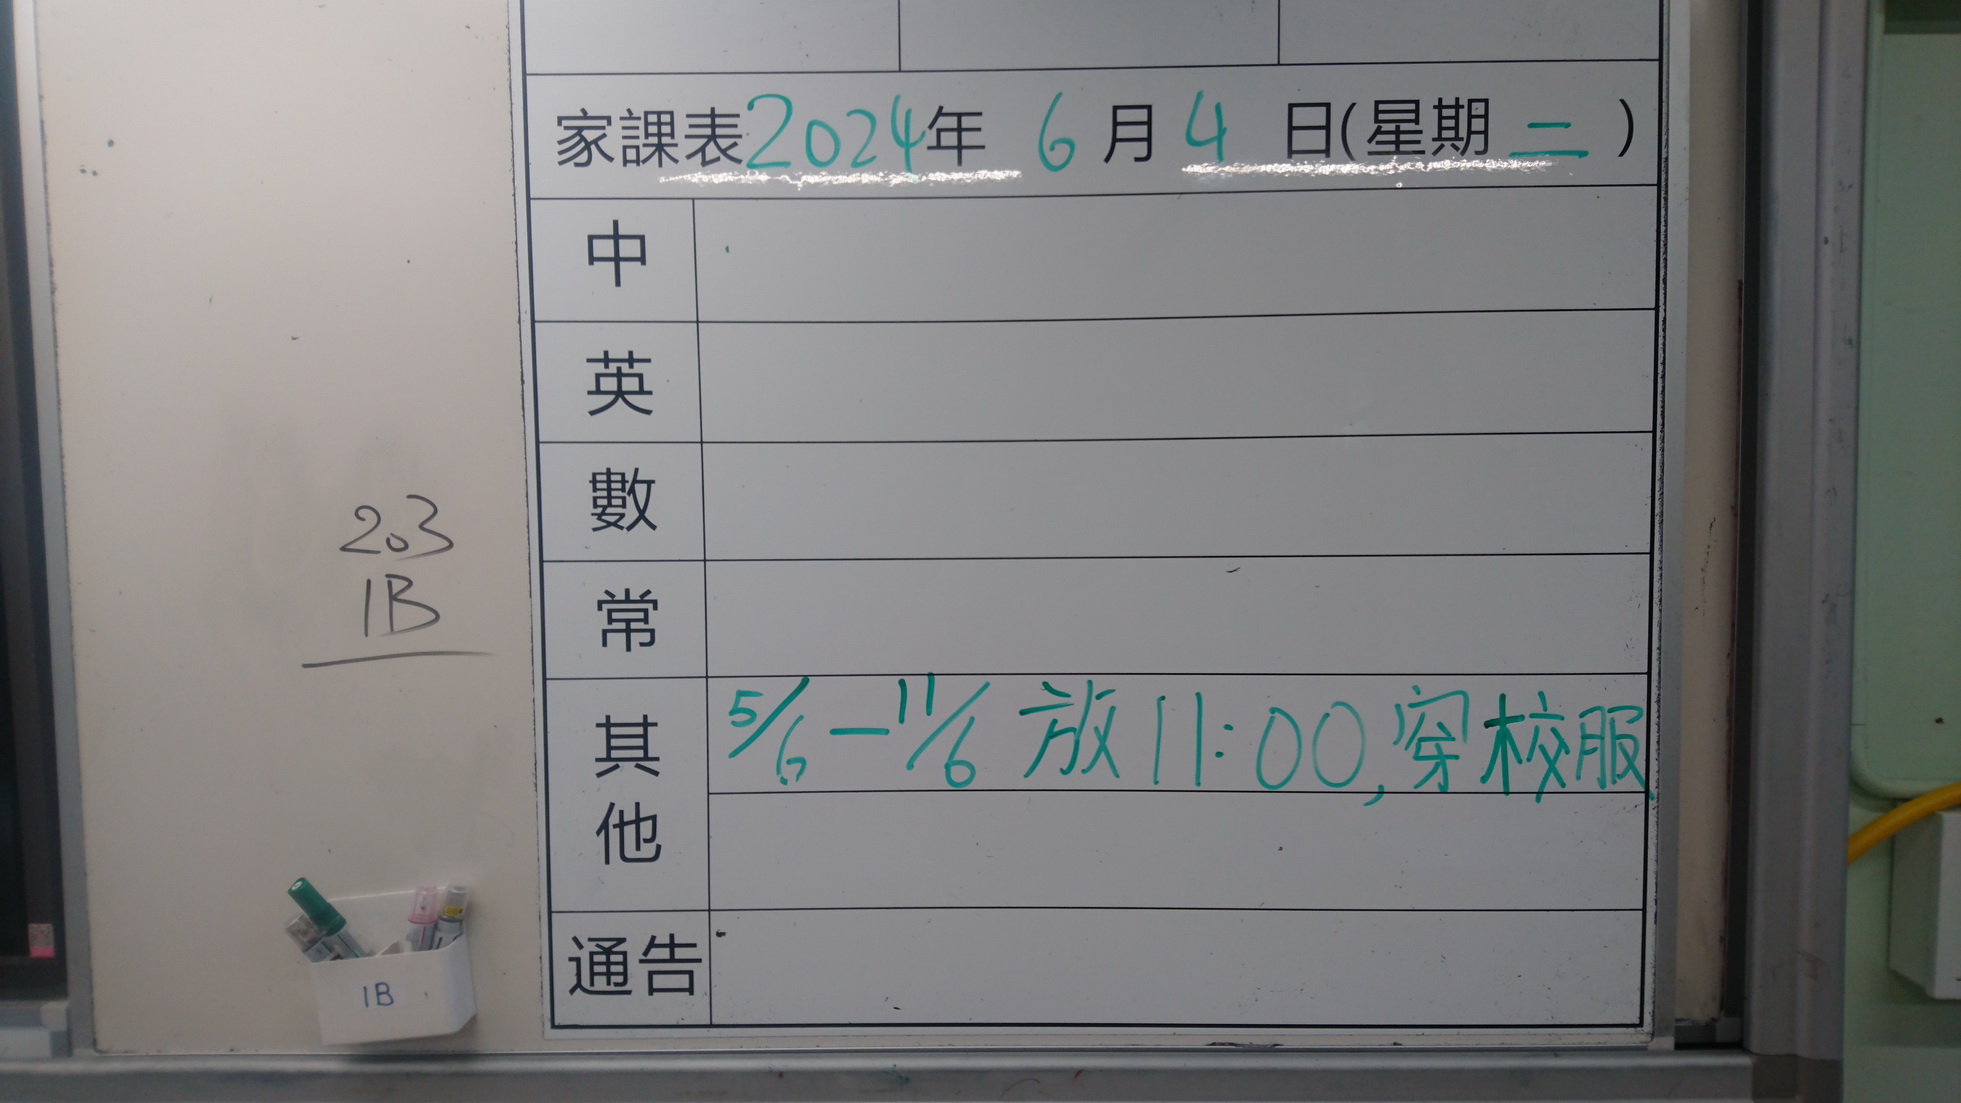 家課表2024年 6月4日(星期二)
中
英
數
常
其他
5/6—11/6 放11:00,穿校服
通告
203
1B
1B